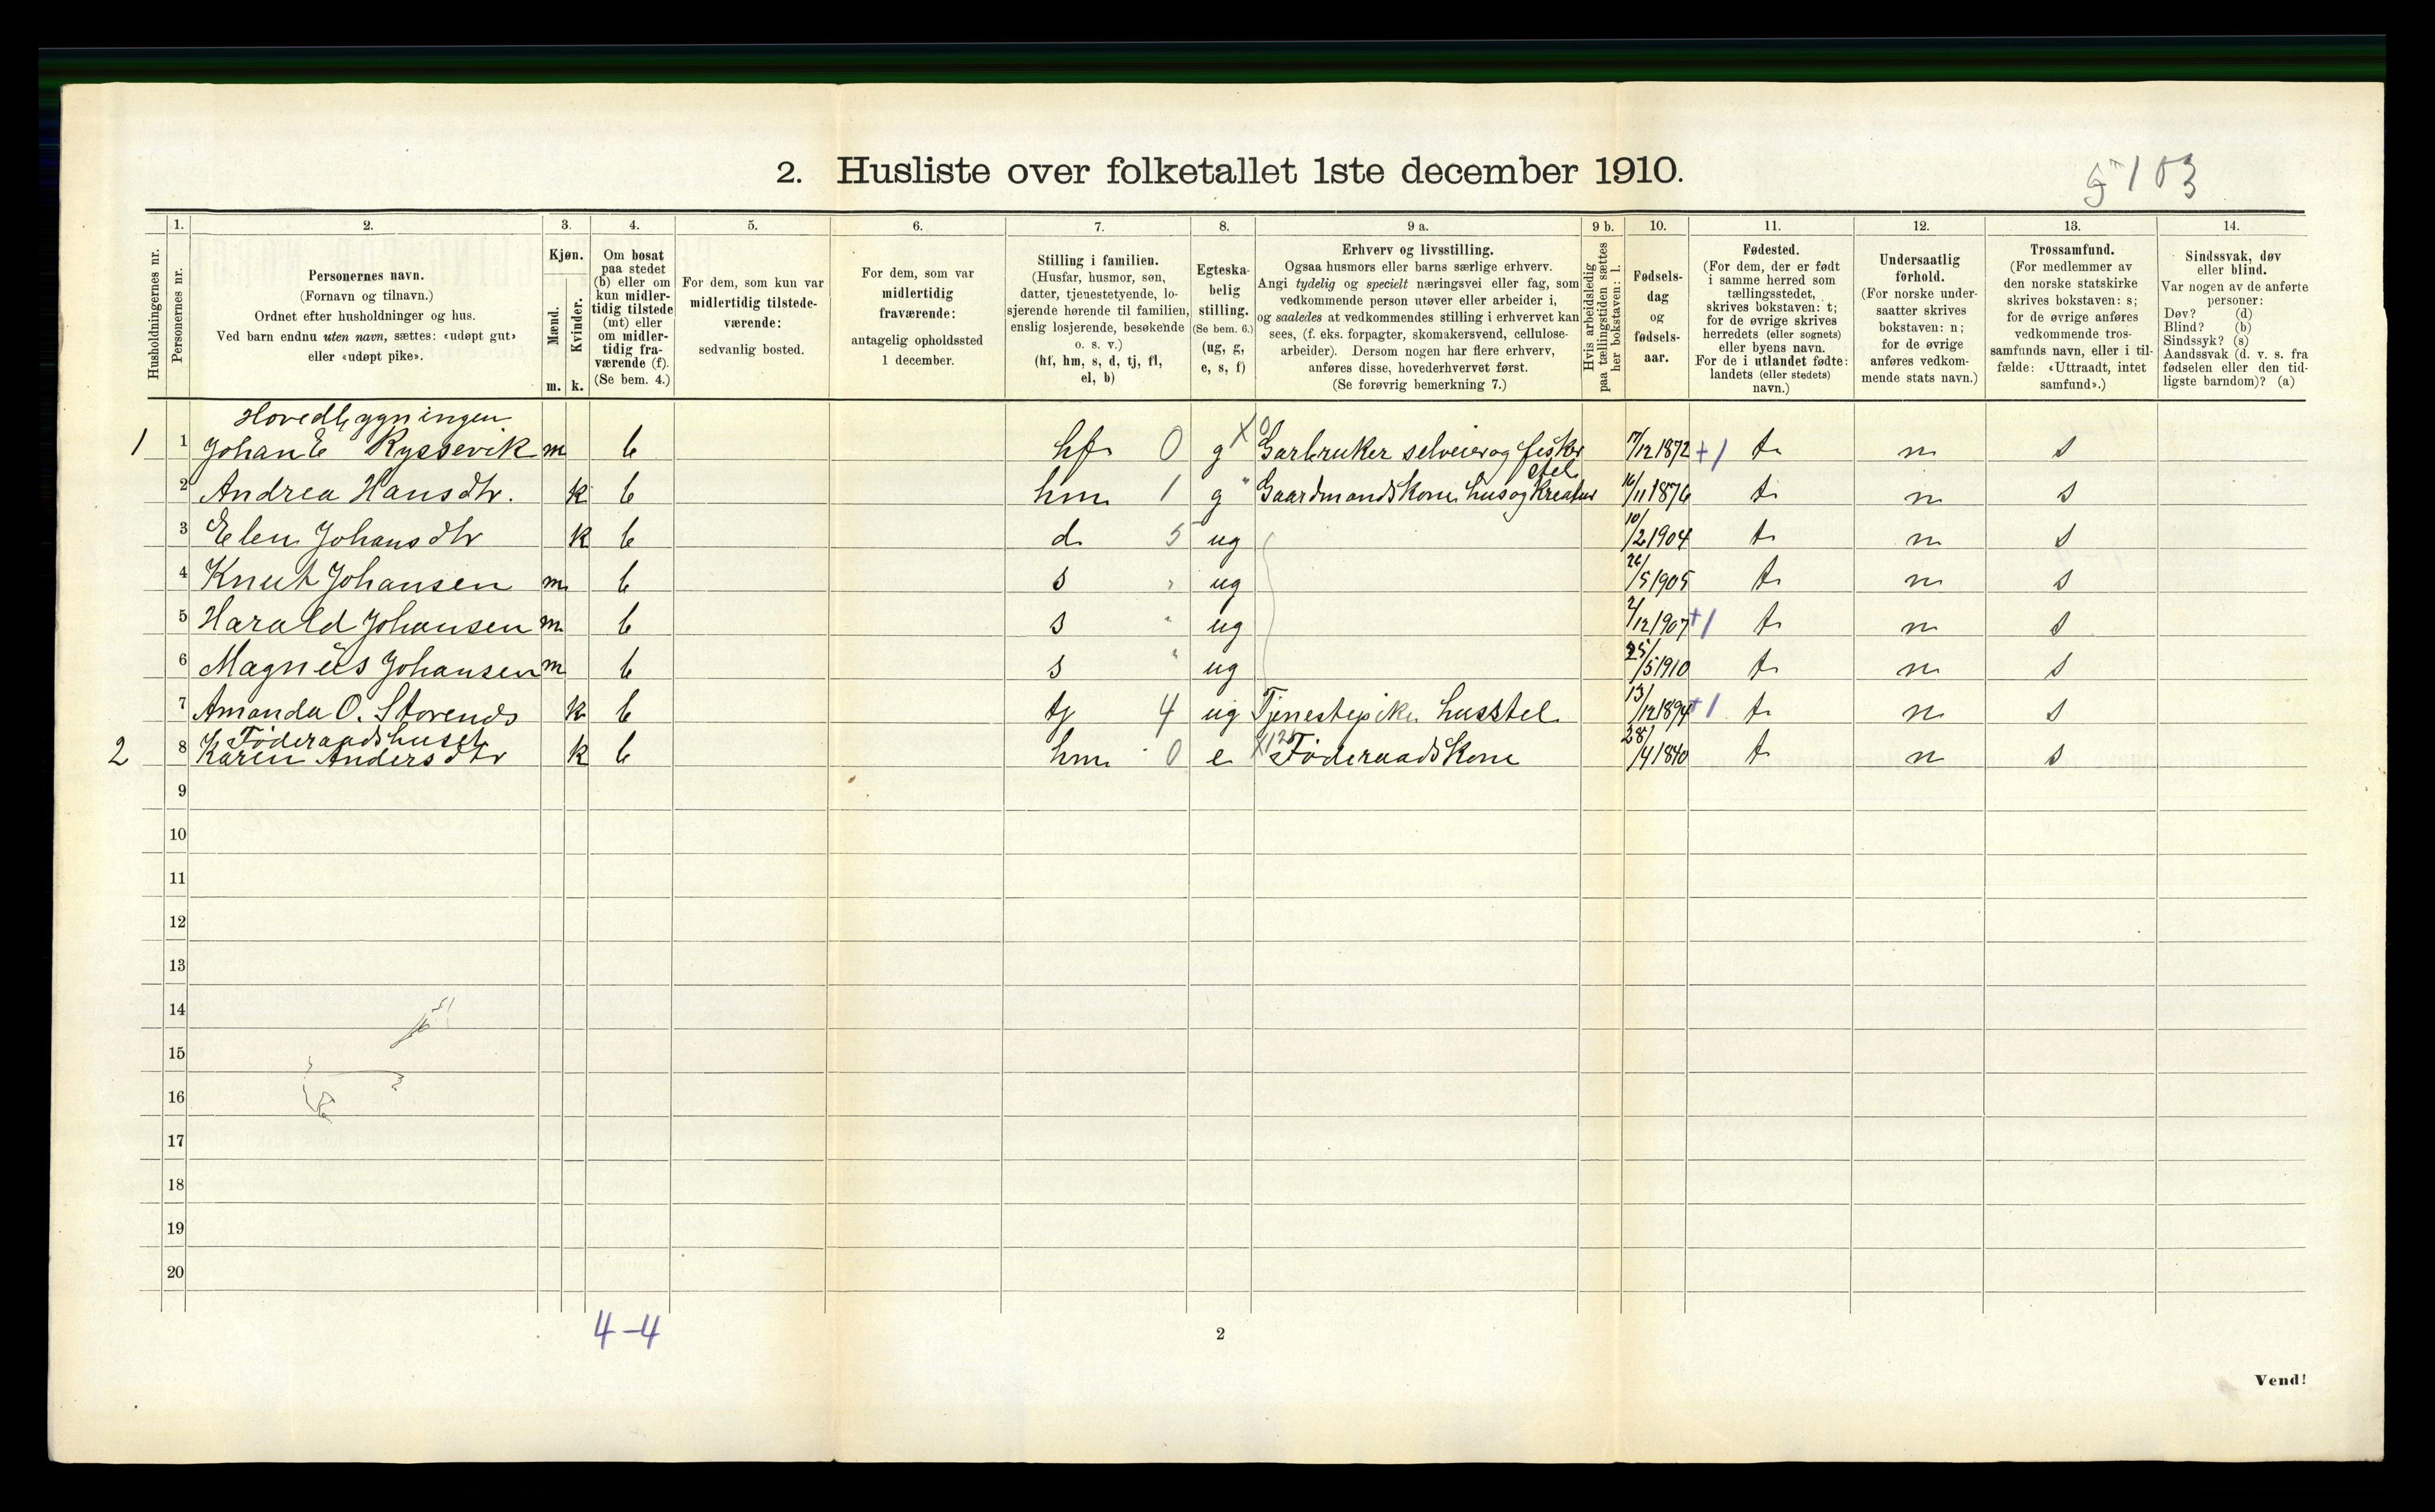 2. Husliste over folketallet 1ste december 1910.
103
Husholdningernes nr.
1.
Personernes nr.
2.
Personernes navn.
(Fornavn og tilnavn.)
Ordnet efter husholdninger og hus.
Ved barn endnu uten navn, sættes: «udøpt gut»
eller «udøpt pike».
3.
Kjøn.
Mænd.
Kvinder.
m. k.
4.
Om bosat
paa stedet
(b) eller om
kun midler-
tidig tilstede
(mt) eller
om midler-
tidig fra-
værende (f).
(Se bem. 4.)
5.
For dem, som kun var
midlertidig tilstede-
værende:
sedvanlig bosted.
6.
For dem, som var
midlertidig
fraværende:
antagelig opholdssted
1 december.
7.
Stilling i familien.
(Husfar, husmor, søn,
datter, tjenestetyende, lo-
sjerende hørende til familien,
enslig losjerende, besøkende
o. s. v.)
(hf, hm, s, d, tj, fl,
el, b)
8.
Egteska-
belig
stilling.
(Se bem. 6.)
(ug, g,
e, s, f)
9 a.
Erhverv og livsstilling.
Ogsaa husmors eller barns særlige erhverv.
Angi tydelig og specielt næringsvei eller fag, som
vedkommende person utøver eller arbeider i,
og saaledes at vedkommendes stilling i erhvervet kan
sees, (f. eks. forpagter, skomakersvend, cellulose-
arbeider). Dersom nogen har flere erhverv,
anføres disse, hovederhvervet først.
(Se forøvrig bemerkning 7.)
9 b.
Hvis arbeidsledig
paa tællingstiden sættes
her bokstaven: l.
10.
Fødsels-
dag
og
fødsels-
aar.
11.
Fødested.
(For dem, der er født
i samme herred som
tællingsstedet,
skrives bokstaven: t;
for de øvrige skrives
herredets (eller sognets)
eller byens navn.
For de i utlandet fødte:
landets (eller stedets)
navn.)
12.
Undersaatlig
forhold.
(For norske under-
saatter skrives
bokstaven: n;
for de øvrige
anføres vedkom-
mende stats navn.)
13.
Trossamfund.
(For medlemmer av
den norske statskirke
skrives bokstaven: s;
for de øvrige anføres
vedkommende tros-
samfunds navn, eller i til-
fælde: «Uttraadt, intet
samfund».)
14.
Sindssvak, døv
eller blind.
Var nogen av de anførte
personer:
Døv? (d)
Blind? (b)
Sindssyk? (s)
Aandssvak (d. v. s. fra
fødselen eller den tid-
ligste barndom)? (a)
Hovedbygningen
1 1 Johan E Ryssevik m b hf 0 g X0 Garbruker selveier og fisker 17/12 1872 +1 t n s
2 Andrea Hansdtr. k b hm 1 g " Gaardmandskone hus og kreatur stel 16/11 1876 t n s
3 Elen Johansdtr k b d 5 ug 10/2 1904 t n s
4 Knut Johansen m b s " ug 26/5 1905 t n s
5 Harald Johansen m b s " ug 2/12 1907 +1 t n s
6 Magnus Johansen m b s " ug 25/5 1910 t n s
7 Amanda O. Storends k b tj 4 ug Tjenestepike husstel 13/12 1894 +1 t n s
Föderaadshuset
2 8 Karen Andersdtr k b hm 0 e Föderaadskone 28/4 1840 t n s
9
10
11
12
13
14
15
16
17
18
19
20
4-4
2
Vend!